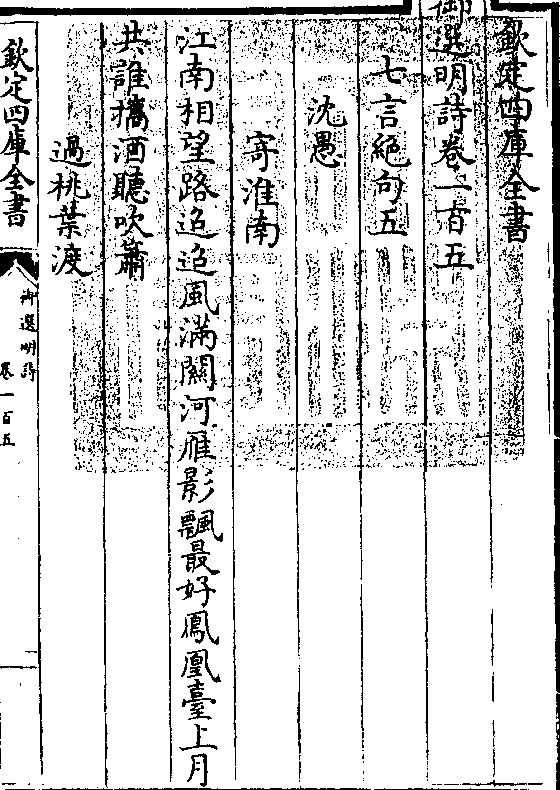 欽定四庫全書
御選明詩卷一百五
七言絶句五
沈愚
寄淮南
江南相望路迢迢風滿關河雁影飄最好鳳凰臺上月
共誰攜酒聽吹簫
過桃葉渡
欽定四庫全書
御選明詩
卷一百五
一